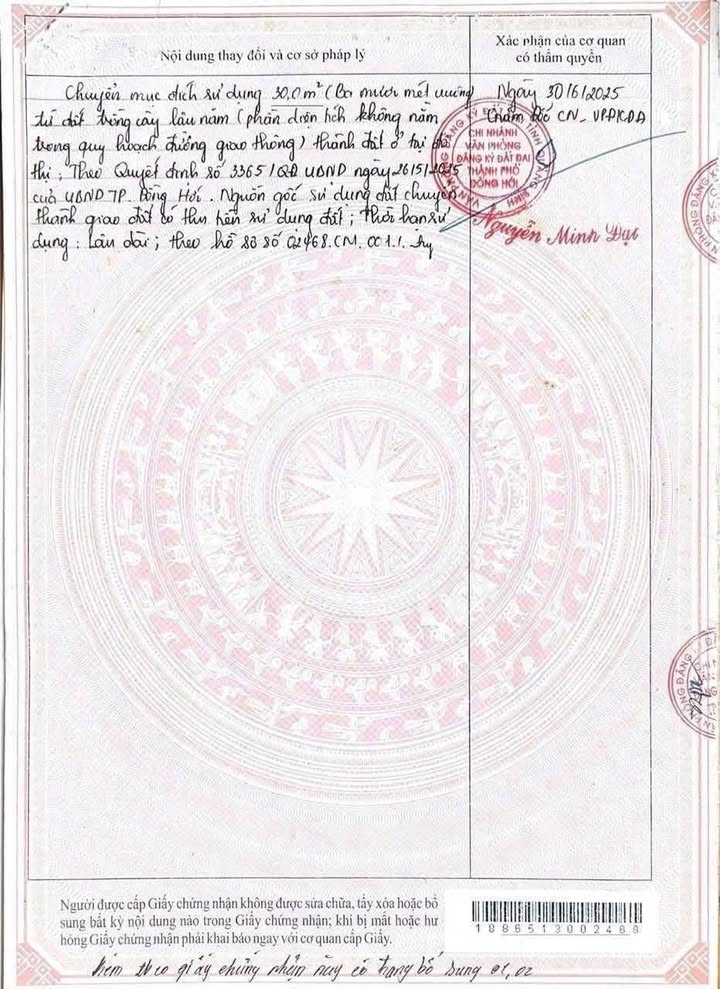 Nội dung thay đổi và cơ sở pháp lý
Xác nhận của cơ quan
có thẩm quyền
Chuyển mục đích sử dụng 30,0 m² (Ba mươi mét vuông)
từ đất trồng cây lâu năm (phần diện tích không nằm
trong quy hoạch đường giao thông) thành đất ở tại đô
thị; Theo Quyết định số 3365/QĐ UBND ngày 26/5/2025
của UBND TP. Đồng Hới. Nguồn gốc sử dụng đất chuyển
thành giao đất có thu tiền sử dụng đất; Thời hạn sử
dụng: Lâu dài; theo hồ sơ số 02468.CN.001.
Ngày 30/6/2025
Giám Đốc CN_ VPĐKĐĐ
CHI NHÁNH
VĂN PHÒNG
ĐĂNG KÝ ĐẤT ĐAI
THÀNH PHỐ
ĐỒNG HỚI
Nguyễn Minh Đạt
Người được cấp Giấy chứng nhận không được sửa chữa, tẩy xóa hoặc bổ
sung bất kỳ nội dung nào trong Giấy chứng nhận; khi bị mất hoặc hư
hỏng Giấy chứng nhận phải khai báo ngay với cơ quan cấp Giấy.
1886513002468
Kèm theo giấy chứng nhận này có trang bổ sung 01, 02